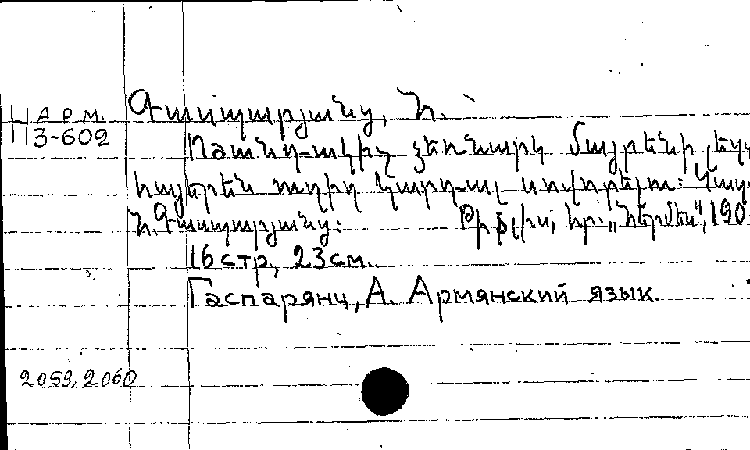 Գասպարյանց, Ն.
Ц АРМ.
3-602
Օժանդակիչ ձեռնարկ մայրենի լեզ
հայերեն ուղիղ կարդալ սովորելու: Կազ
Ն. Գասպարյանց: Թիֆլիս, հր. „Հերմես", 190
16 стр, 23 см.
Гаспарянц, А. Армянский язык.
2059, 2060